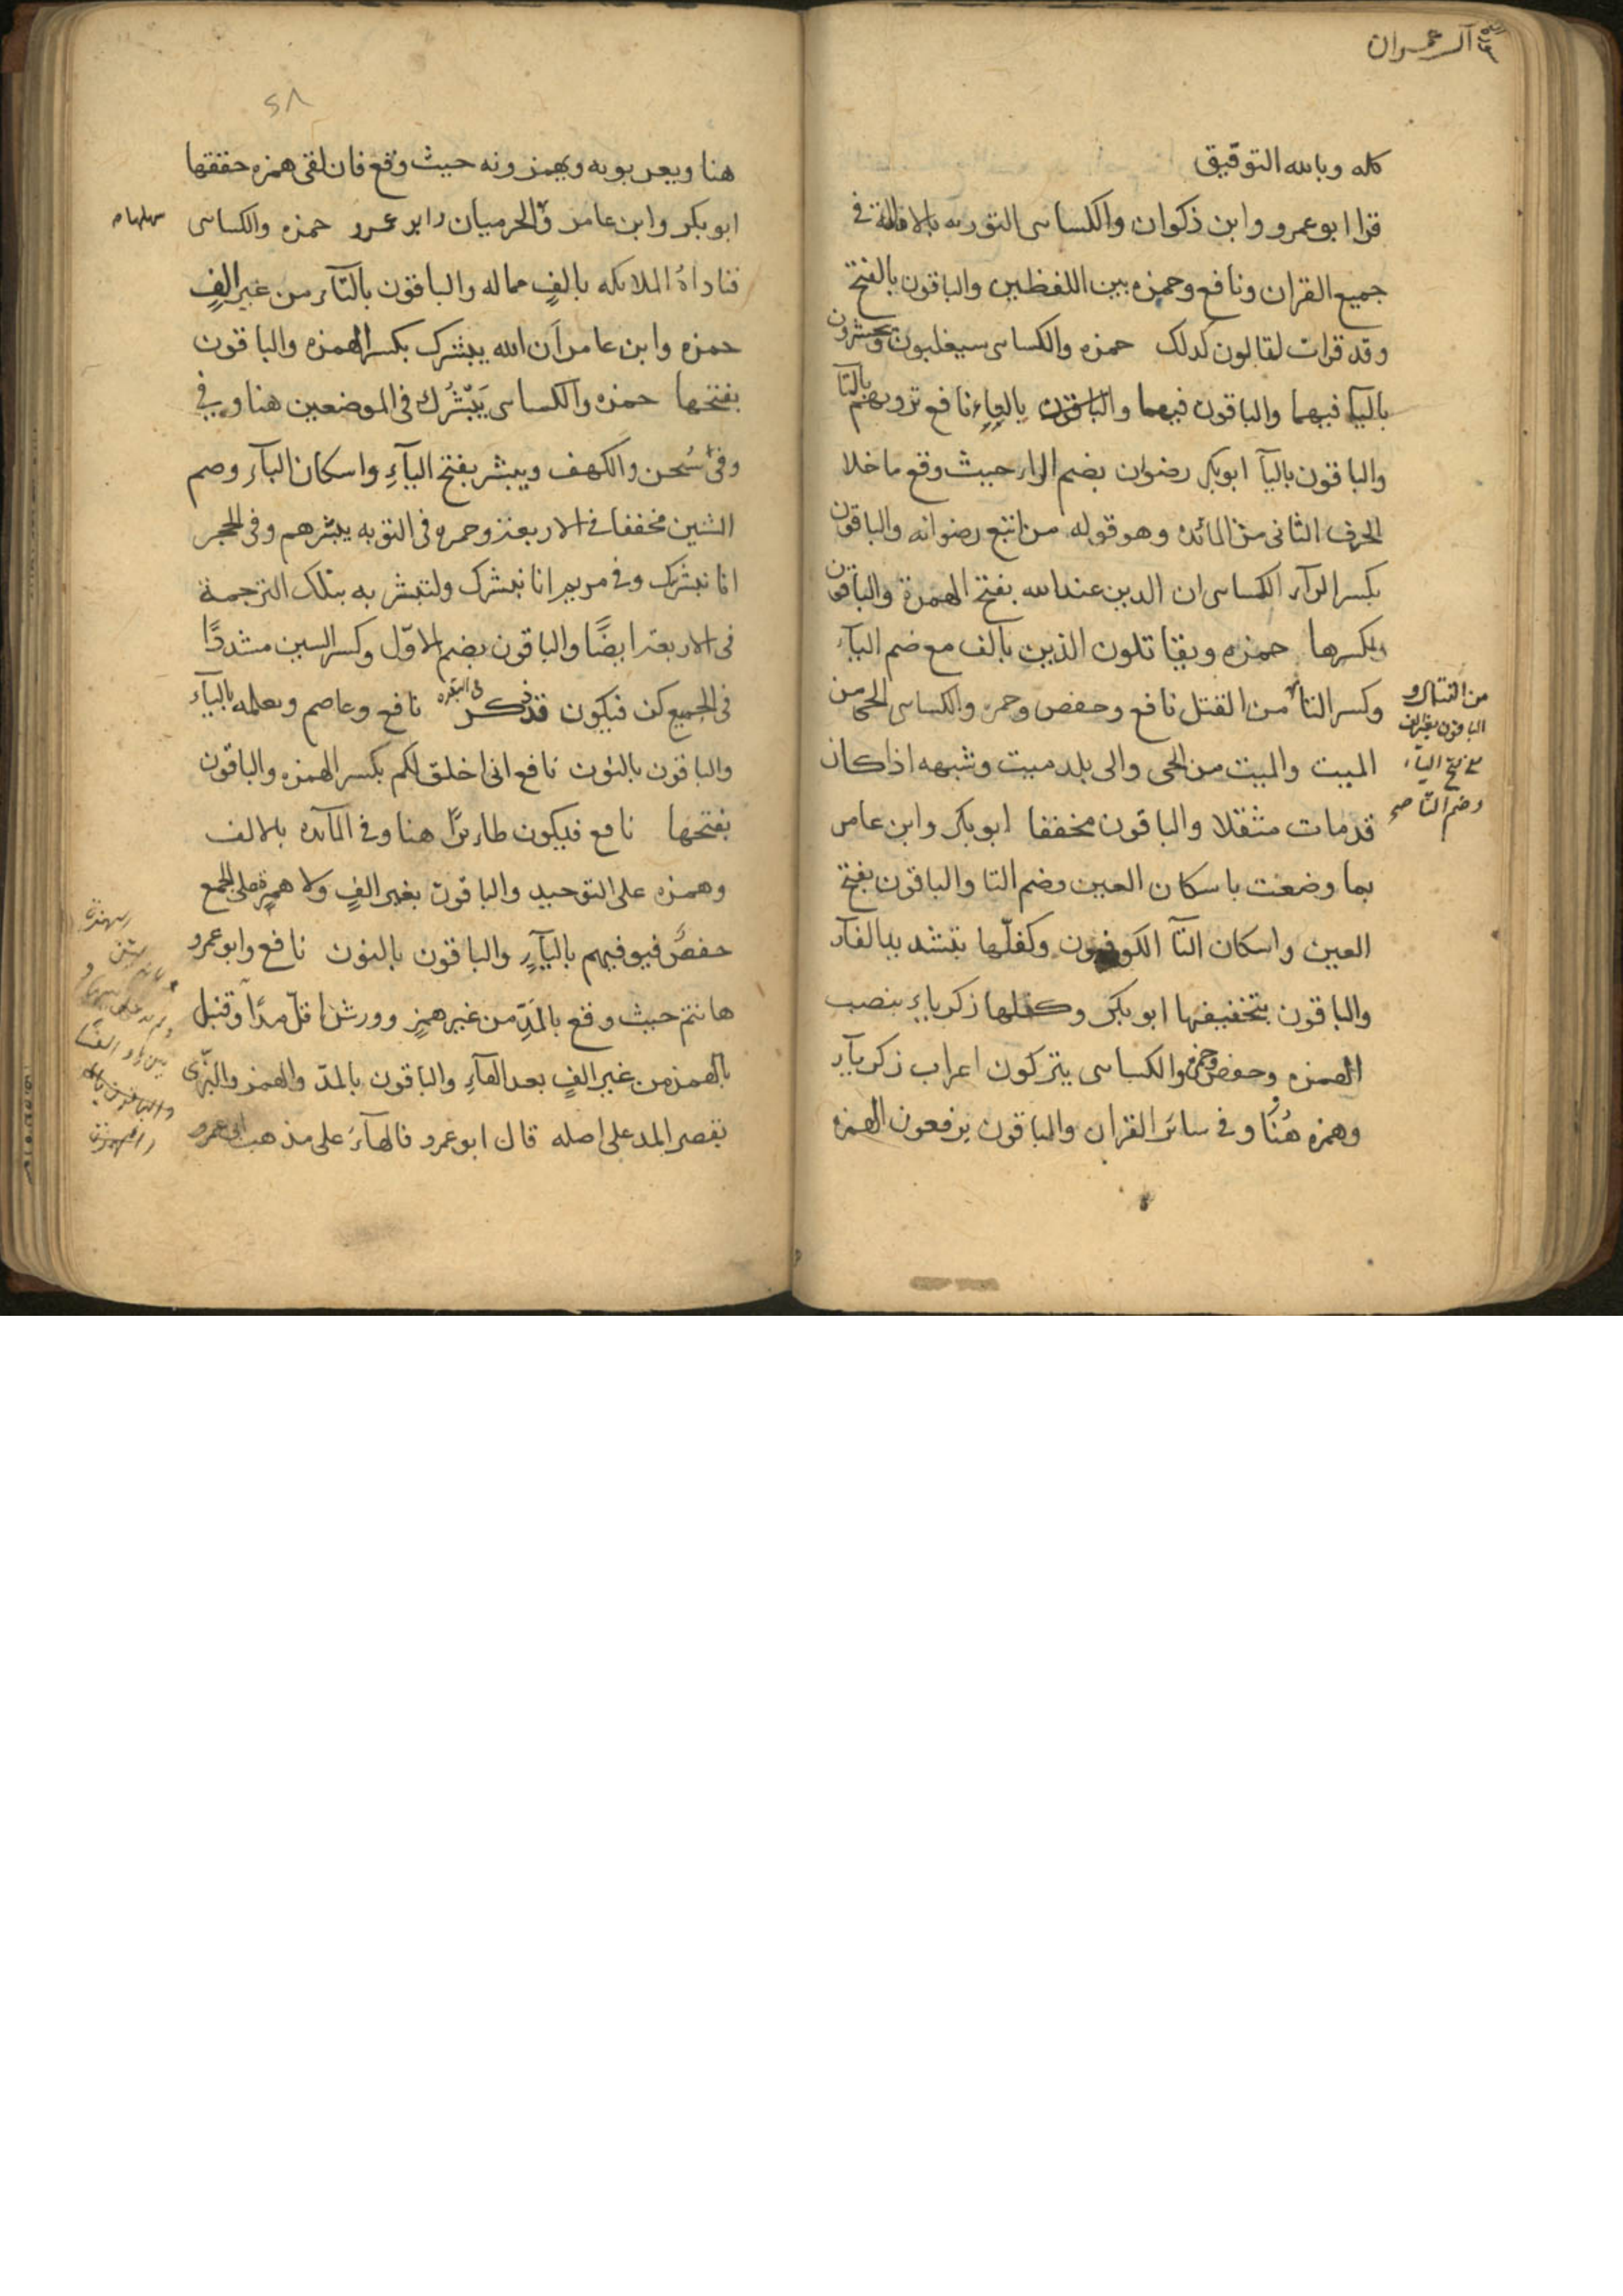 سورة آل عمران
كله وبالله التوفيق
قرا ابو عمرو وابن ذكوان والكساى التوريه بالامالة فى
جميع القران ونافع وحمزه بين اللفظين والباقون بالفتح
وقد قرات لقالون كدلك حمزه والكساى سيغلبون ويحشرون
باليآ فيهما والباقون فيهما والباقون بالتا نافع ترونهم بالتآ
والباقون باليآ ابو بكر رضوان بضم الرا حيث وقع ما خلا
الحرف الثانى من المائده وهو قوله من اتبع رضوانه والباقون
بكسر الرآء الكساى ان الدين عند الله بفتح الهمزة والباقون
بكسرها حمزه ويقاتلون الذين بالف مع ضم اليآء
وكسر التآ من القتل نافع وحفص وحمزه والكساى الحى من
الميت والميت من الحى والى بلد ميت وشبهه اذا كان
قد مات مثقلا والباقون مخففا ابو بكر وابن عامر
بما وضعت باسكان العين وضم التا والباقون بفتح
العين واسكان التآ الكوفيون وكفلّها بتشديد الفآء
والباقون بتخفيفها ابو بكر وكفلها زكرياء بنصب
الهمزه وحفص وحمزه والكساى يتركون اعراب زكريآء
وهمزه هُنا وفى سائر القران والباقون يرفعون الهمزه
من القتال و
الباقون بغير الف
مع فتح اليآء
وضم التا صح
٢٨
هنا ويعربونه ويهمزونه حيث وقع فان لقى همزه حققها
ابو بكر وابن عامر والحرميان وابو عمرو حمزه والكساى
سهلها
فناداهُ الملايكه بالفٍ مماله والباقون بالتآء من غير الفٍ
حمزه وابن عامر اَن الله يبشرك بكسر الهمزه والباقون
بفتحها حمزه والكساى يَبْشُرُك فى الموضعين هنا وفى
وفى سُبحن والكهف ويبشر بفتح اليآءِ واسكان البآء وضم
الشين مخففا فى الاربعة وحمزه فى التوبه يبشرهم وفى الحجر
انا نبشرك وفى مريم انا نبشرك ولتبشر به بتلك الترجمة
فى الاربعة ايضًا والباقون بضم الاوّل وكسر الشين مشددًا
فى الجميع كن فيكون قد ذكر فى البقره نافع وعاصم ويعلمه باليآء
والباقون بالنون نافع انى اخلق لكم بكسر الهمزه والباقون
بفتحها نافع فيكون طائرًا هنا وفى المآئده بالالف
وهمزه على التوحيد والباقون بغير الفٍ ولا همزةٍ على الجمع
حفصٌ فيوفيهم باليآءِ والباقون بالنون نافع وابو عمرو
هانتم حيث وقع بالمَدِّ من غير همزٍ وورش اقلّ مدًا وقنبل
بالهمز من غير الفٍ بعد الهآءِ والباقون بالمدّ والهمز والبزّى
بقصر المد على اصله قال ابو عمرو فالهآءُ على مذهب ابى عمرو